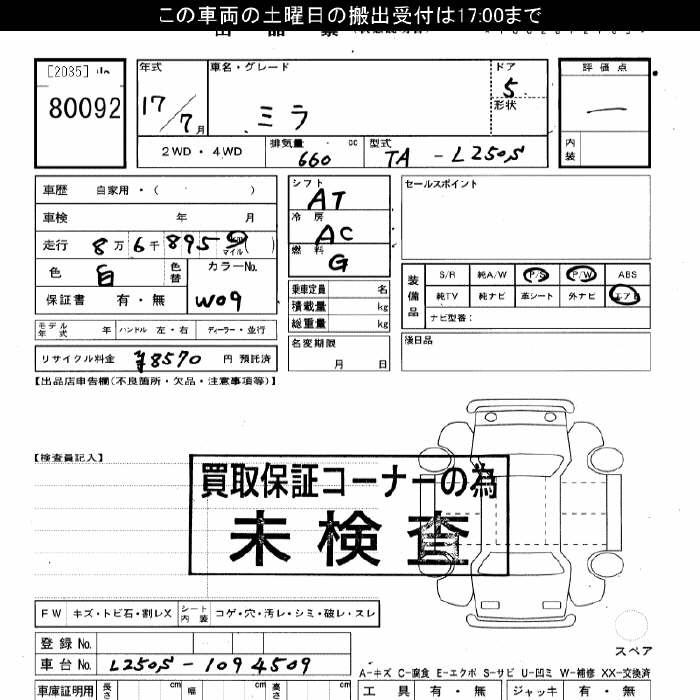 この車両の土曜日の搬出受付は17:00まで
[2035]
80092
年式 車名・グレード ドア 評価点
17/7月 ミラ 5 —
形状
2WD・4WD 排気量 660 cc 型式 TA-L250S 内装
車歴 自家用・( )
車検 年 月
走行 8万6千895 km マイル ( )
色 白 色替 カラーNo. W09
保証書 有・無
モデル年式 年 ハンドル 左・右 ディーラー・並行
リサイクル料金 ¥8570 円 預託済
シフト AT
冷房 AC
燃料 G
乗車定員 名
積載量 kg
総重量 kg
名変期限
月 日
セールスポイント
装備品 S/R 純A/W P/S P/W ABS
純TV 純ナビ 革シート 外ナビ エアB
ナビ型番:
後日品
【出品店申告欄(不良箇所・欠品・注意事項等)】
【検査員記入】
買取保証コーナーの為
未検査
FW キズ・トビ石・割レX シート内装 コゲ・穴・汚レ・シミ・破レ・スレ
登録No.
車台No. L250S-1094509
スペア
A-キズ C-腐食 E-エクボ S-サビ U-凹ミ W-補修 XX-交換済
車庫証明用 長さ cm 幅 cm 高さ cm 工具 有・無 ジャッキ 有・無